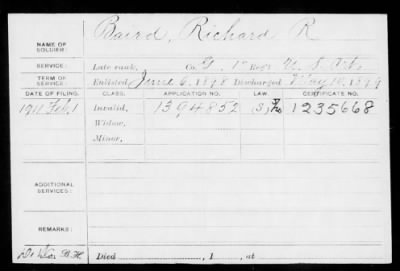 NAME OF SOLDIER: Baird, Richard R
SERVICE: Late rank, Co. G. 1" Reg't U. S. Art.
TERM OF SERVICE: Enlisted June 6, 1898 Discharged May 10, 1899
DATE OF FILING. CLASS. APPLICATION NO. LAW. NO.
1911 Feb. 1 Invalid, 1394852 1235668
Widow,
Minor,
ADDITIONAL SERVICES:
REMARKS:
Died , 1 , at